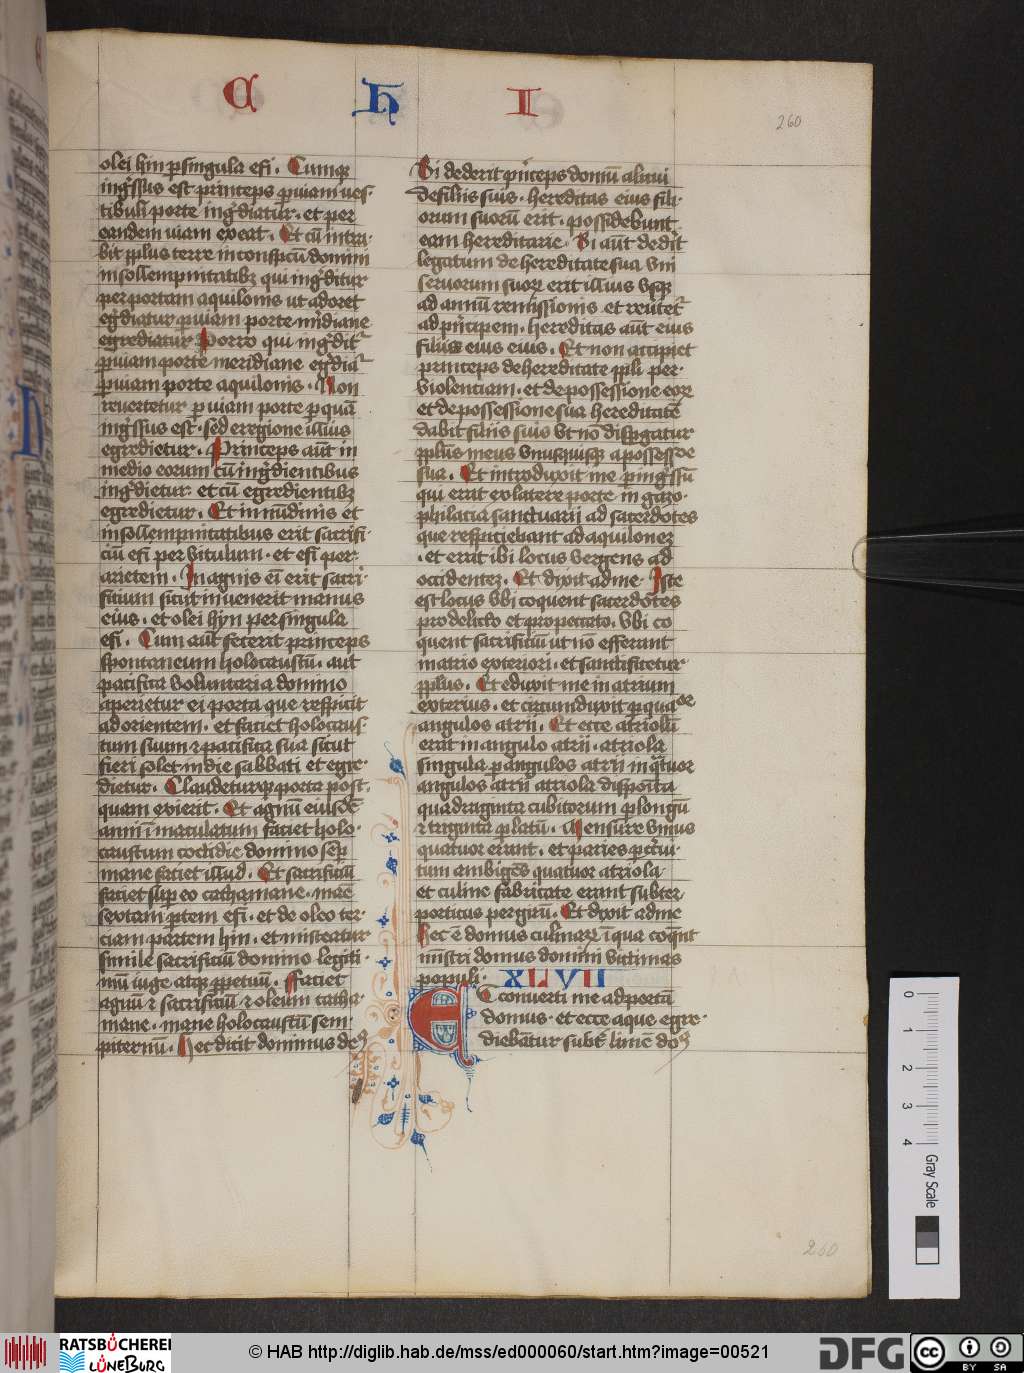 C h I
260
olei hin p singula efi. Cumqz
ingressus est princeps p uiam ves-
tibuli porte ingrediatur. et per
eandem uiam exeat. Et cu intra-
bit pplus terre in conspectu domini
in sollempnitatibz qui ingreditur
per portam aquilonis ut adoret
egrediatur p uiam porte meridiane
egrediatur Porro qui ingredit
p uiam porte meridiane egredia
p uiam porte aquilonis. Non
reuertetur p uiam porte p qua
ingressus est. sed e regione illius
egredietur. Princeps aut in
medio eorum cu ingredientibus
ingredietur et cu egredientibz
egredietur. Et in nudinis et
in sollempnitatibus erit sacrifi-
ciu efi per vitulum. et efi per
arietem. In agnis ei erit sacri-
ficium sicut inuenerit manus
eius. et olei hyn per singula
efi. Cum aut fecerit princeps
spontaneum holocaustu. aut
pacifica voluntaria domino
aperietur ei porta que respicit
ad orientem. et faciet holocaus-
tum suum et pacifica sua sicut
fieri solet in die sabbati et egre-
dietur. Claudeturqz porta post-
quam exierit. Et agnu eiusde
anni imaculatum faciet holo-
caustum cotidie domino semp
mane faciet illud. Et sacrificiu
faciet sup eo cathamane. mane
sextam ptem efi. et de oleo ter-
ciam partem hin. et misceatur
simile sacrificiu domino legiti-
mu iuge atqz ppetuu. ffaciet
agnu et sacrificiu et oleum catha-
mane. mane holocaustu sem-
piternu. Hec dicit dominus deus
Si dederit princeps donu alicui
de filiis suis. hereditas eius fili-
orum suoru erit. possidebunt
eam hereditarie. Si aut dederit
legatum de hereditate sua vni
seruorum suor erit illius vsqz
ad annu remissionis et reuertet
ad principem. hereditas aut eius
filiis eius eius. Et non accipiet
princeps de hereditate ppli per
violentiam. et de possessione eor
et de possessione sua hereditate
dabit filiis suis vt no dispgatur
pplus meus vnusquisqz a possessde
sua. Et introduxit me p ingressu
qui erat ex latere porte in gazo-
philacia sanctuarii ad sacerdotes
que respiciebant ad aquilonez
. et erat ibi locus vergens ad
occidentez. Et dixit ad me Iste
est locus vbi coquent sacerdotes
pro delicto et pro peccato. vbi co
quent sacrificiu ut no efferant
in atrio exteriori. et sanctificetur
pplus. Et eduxit me in atrium
exterius. et circumduxit p quatde
angulos atrii. Et ecce atriolu
erat in angulo atrii. atriola
singula p angulos atrii in quatuor
angulos atrii atriola disposita
quadraginta cubitorum p longu
et triginta p latu. Mensure vnius
quatuor erant. et paries p circui-
tum ambiges quatuor atriola
et culine fabricate erant subter
porticus per giru. Et dixit ad me
Hec e domus culinar i qua coquent
ministri domus domini victimas
populi. XLVII
Et conuerti me ad porta
domus. et ecce aque egre-
diebantur subter limen domus
260
0
1
2
3
4
Gray Scale
RATSBÜCHEREI
LÜNEBURG
© HAB http://diglib.hab.de/mss/ed000060/start.htm?image=00521
DFG
cc BY SA